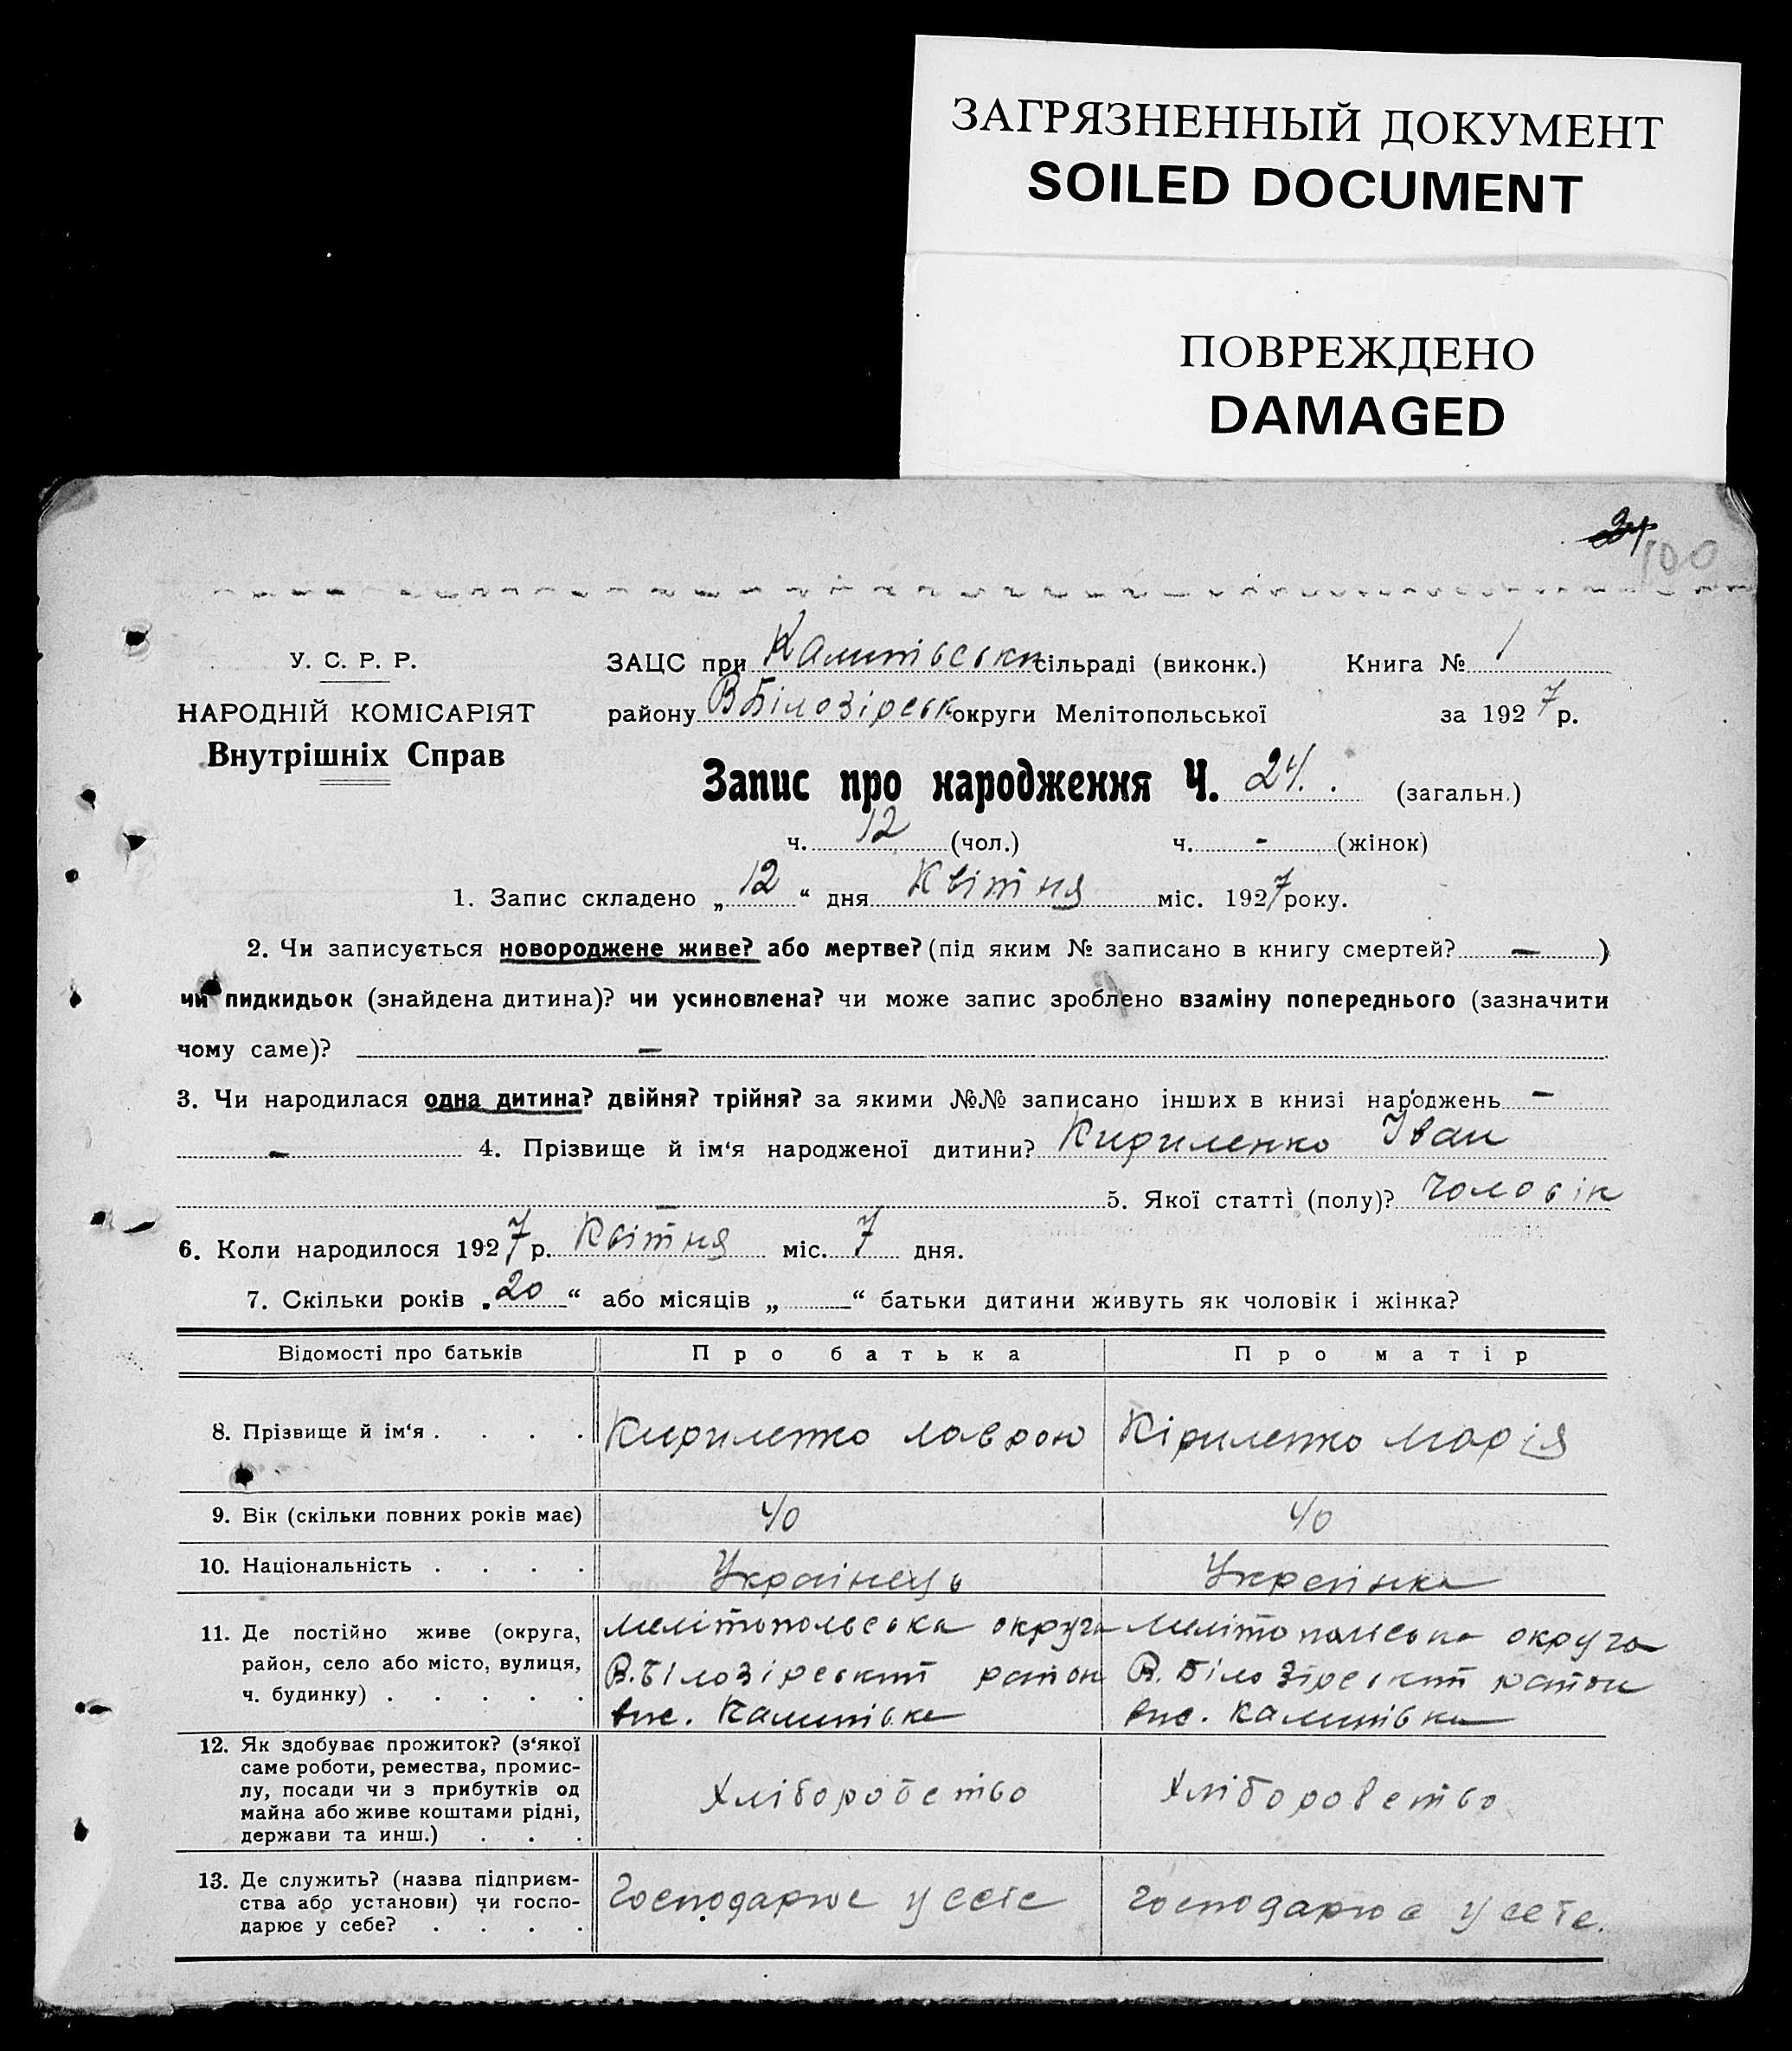 ЗАГРЯЗНЕННЫЙ ДОКУМЕНТ
SOILED DOCUMENT
ПОВРЕЖДЕНО
DAMAGED
24 100
У. С. Р. Р.
НАРОДНІЙ КОМІСАРІЯТ
Внутрішніх Справ
ЗАЦС при сільраді (виконк.) Книга № 1
району В Білозірськ округи Мелітопольської за 1927 р.
Запис про народження Ч. 24. (загальн.)
ч. 12 (чол.) ч. - (жінок)
1. Запис складено „ 12 “ дня Квітня міс. 1927 року.
2. Чи записується новороджене живе? або мертве? (під яким № записано в книгу смертей? — )
чи пидкидьок (знайдена дитина)? чи усиновлена? чи може запис зроблено взаміну попереднього (зазначити
чому саме)? —
3. Чи народилася одна дитина? двійня? трійня? за якими №№ записано інших в книзі народжень —
— 4. Прізвище й ім‘я народженої дитини? Кириленко Іван
5. Якої статті (полу)? Чоловік
6. Коли народилося 1927 р. Квітня міс. 7 дня.
7. Скільки років „ 20 “ або місяців „ “ батьки дитини живуть як чоловік і жінка?
Відомості про батьків Про батька Про матір
8. Прізвище й ім‘я . . . . Кириленко Кіриленко Марія
9. Вік (скільки повних років має) 40 40
10. Національність . . . . Українець Українка
11. Де постійно живе (округа,
район, село або місто, вулиця,
ч. будинку) . . . . .
Мелітопольська округа
В. Білозірський район
Мелітопольська округа
В. Білозірський район
12. Як здобуває прожиток? (з‘якої
саме роботи, ремества, промис-
лу, посади чи з прибутків од
майна або живе коштами рідні,
держави та инш.) . . .
Хліборобство
Хліборобство
13. Де служить? (назва підприєм-
ства або установи) чи госпо-
дарює у себе? . . . .
Господарює у себе
Господарює у себе.